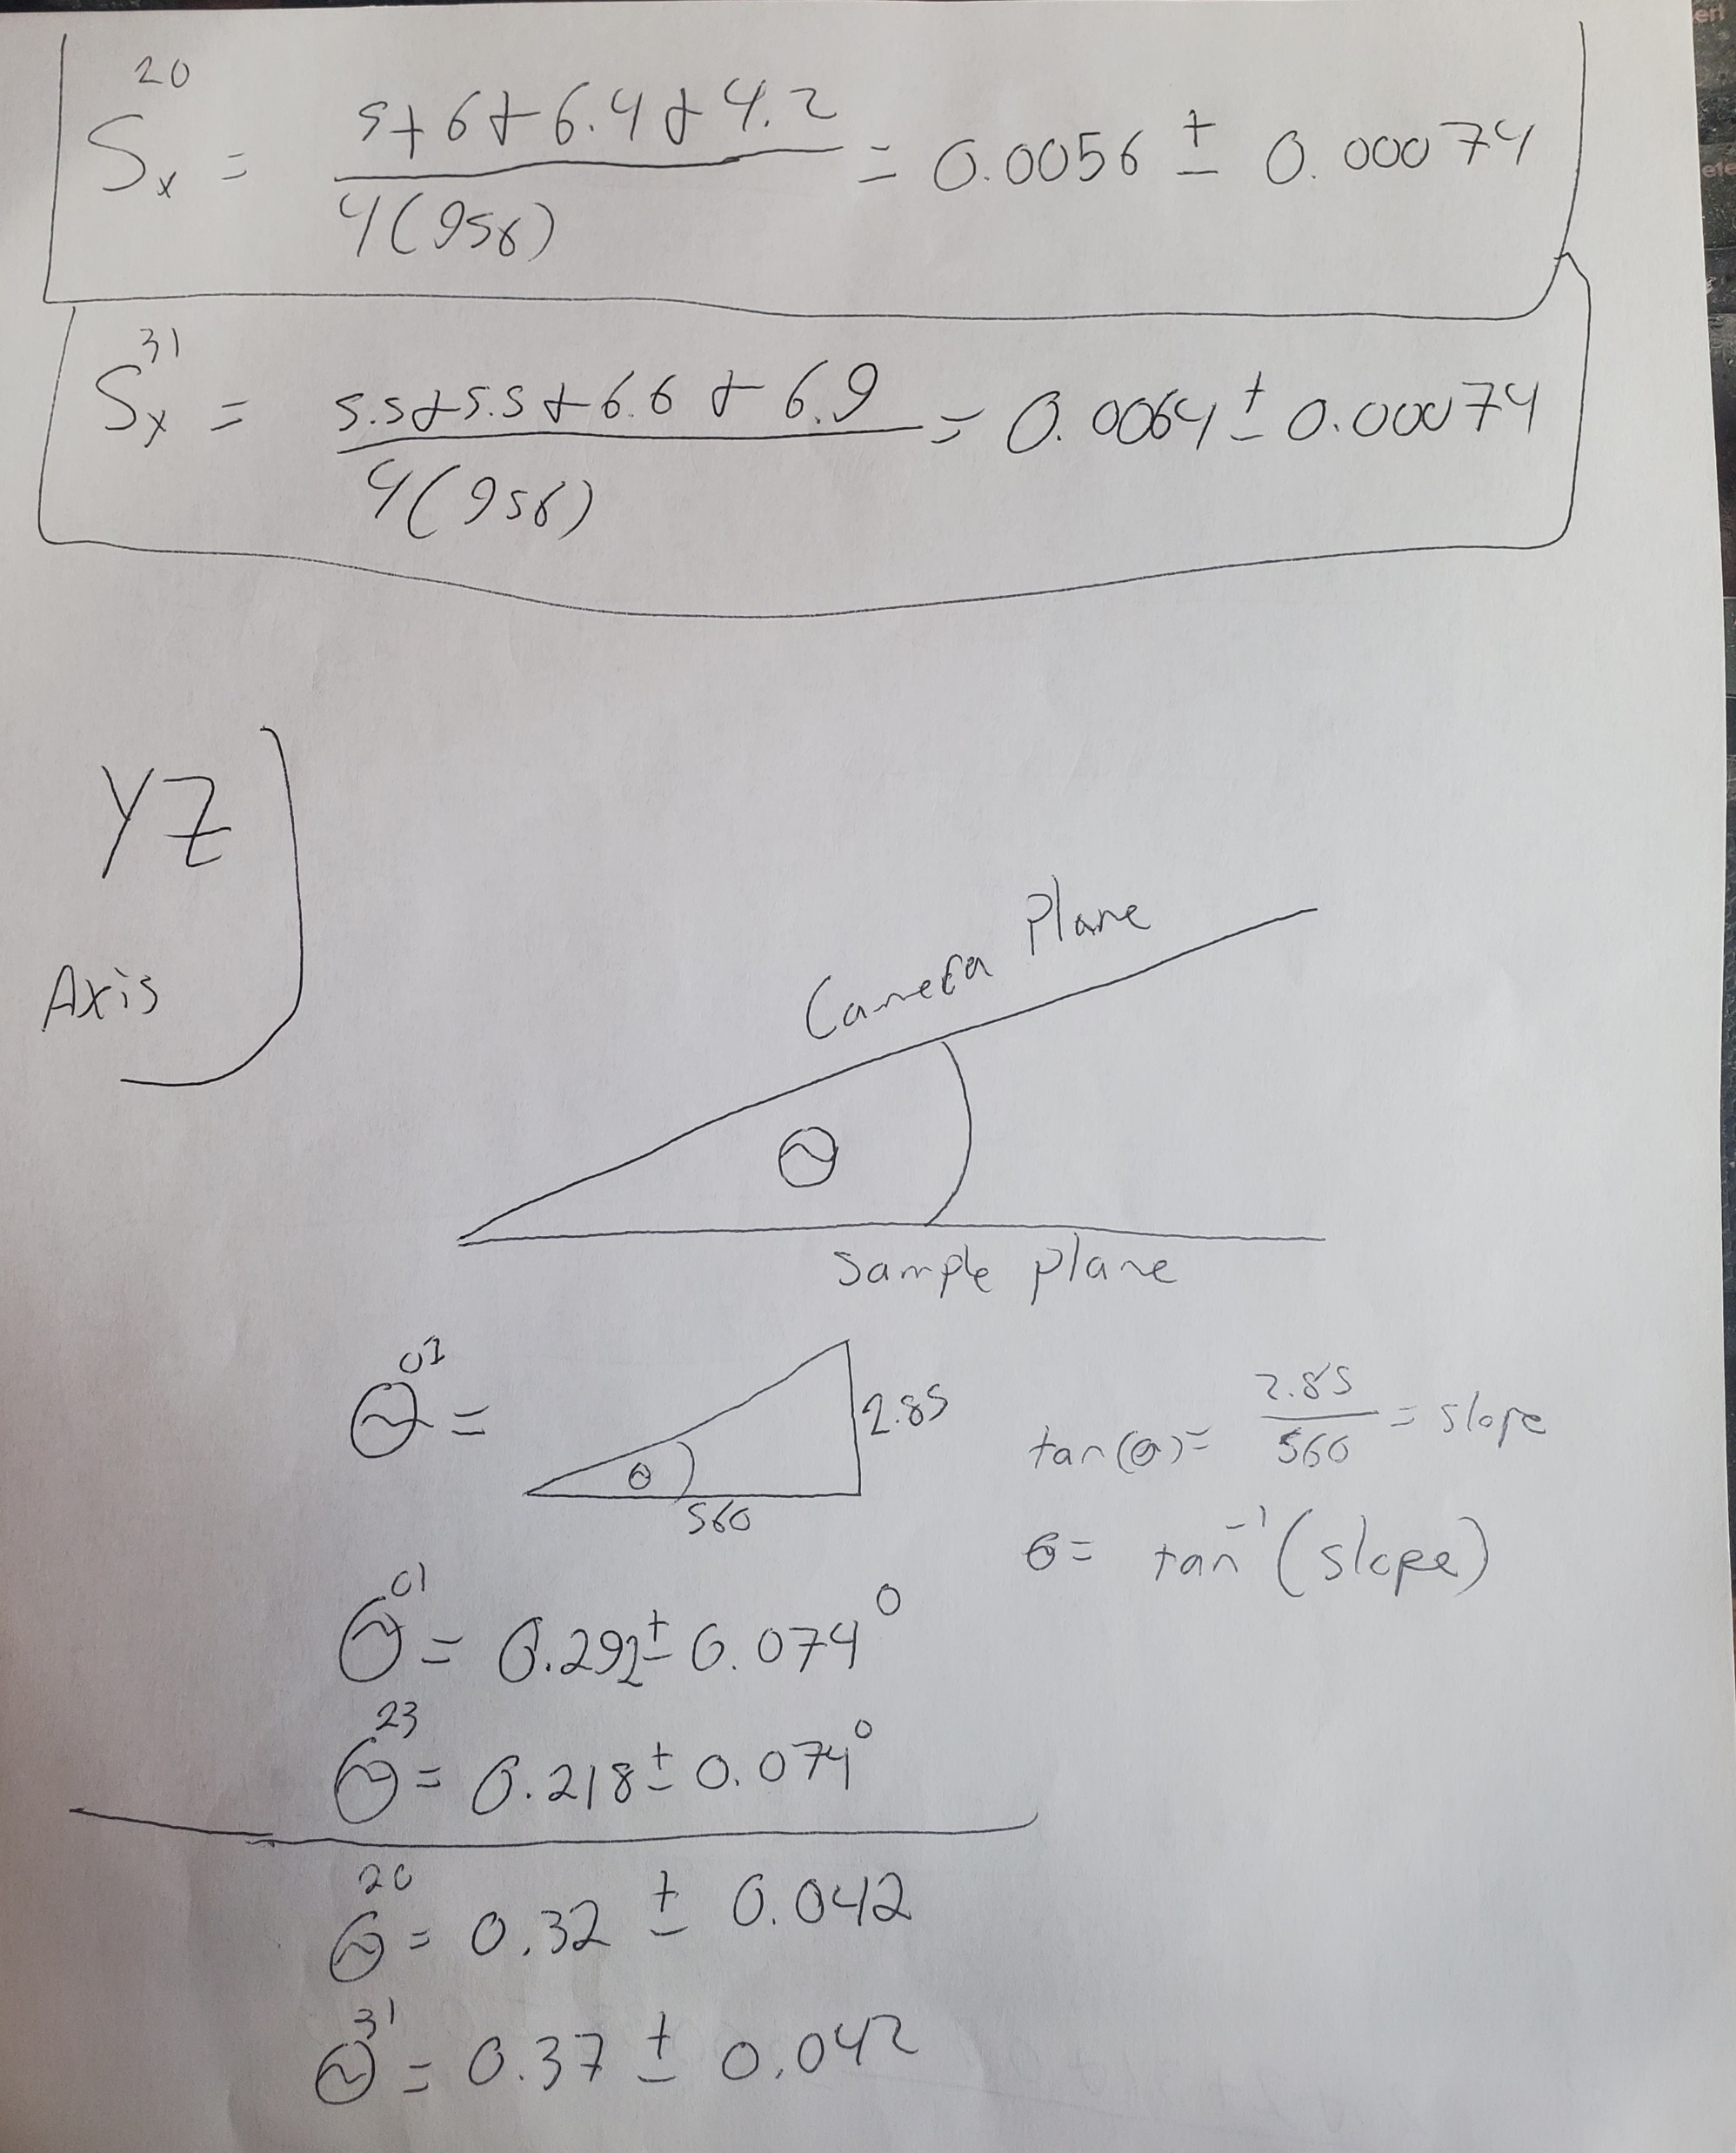 20
Sx = 5+6+6.4+4.2 / 4(956) = 0.0056 ± 0.00074
31
Sx = 5.5+5.5+6.6+6.9 / 4(956) = 0.0064 ± 0.00074
YZ
Axis
Camera Plane
Θ
Sample plane
Θ^01 =
Θ
2.85
560
tan(θ) = 2.85 / 560 = slope
θ = tan^-1 (slope)
Θ^01 = 0.292 ± 0.074°
Θ^23 = 0.218 ± 0.074°
Θ^20 = 0.32 ± 0.042
Θ^31 = 0.37 ± 0.042